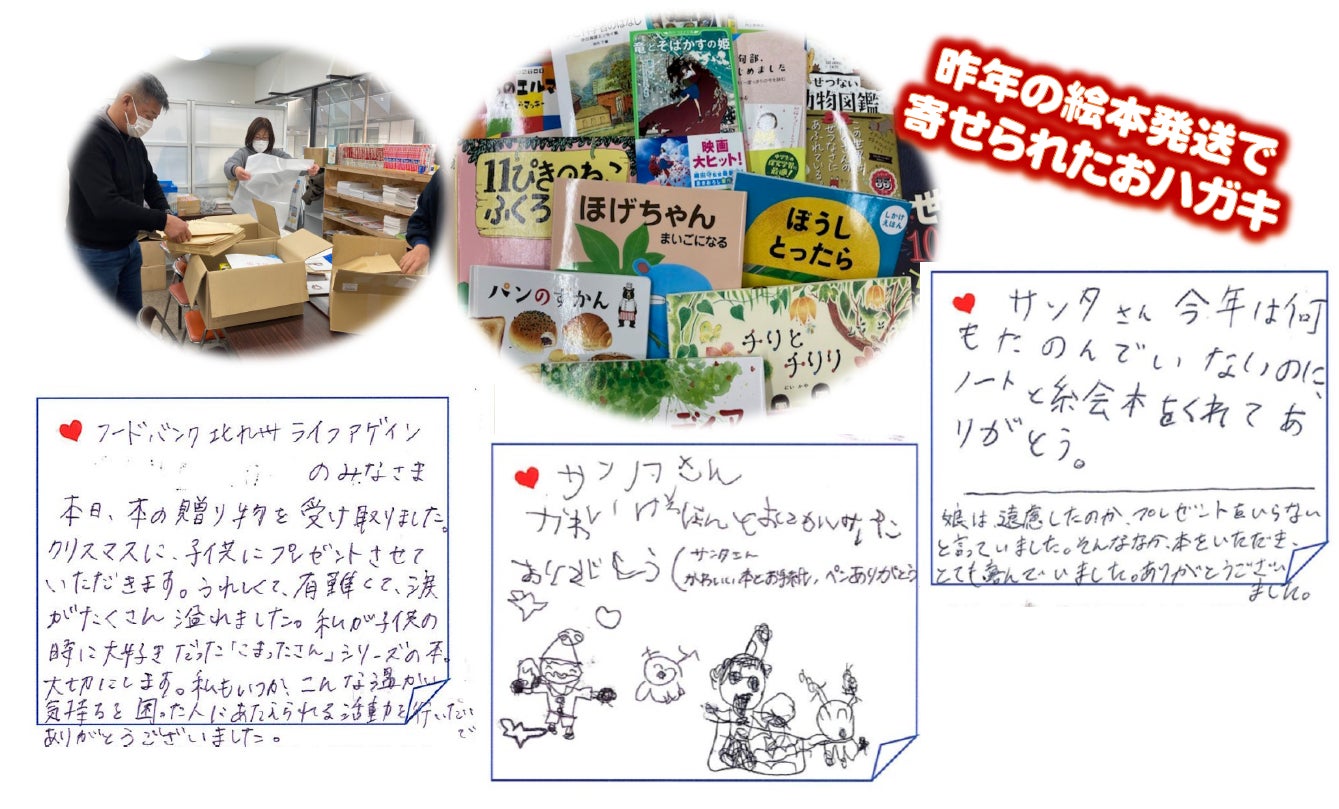 昨年の絵本発送で
寄せられたおハガキ
竜とそばかすの姫
句部、
じめました
せつない
動物図鑑
のエルマ
映画
大ヒット!
11ぴきのねこ
ふくろ
ほげちゃん
まいごになる
ぼうし
とったら
しかけ
えほん
パンのずかん
チリと
チリリ
サンタさん 今年は何
もたのんでいないのに、
ノートと絵会本をくれてあ
りがとう。
娘は、遠慮したのか、プレゼントをいらない
と言っていました。そんななか、本をいただき、
とても喜んでいました。ありがとうござい
ました。
フードバンク北九州 ライフアゲイン
のみなさま
本日、本の贈り物を受け取りました。
クリスマスに、子供にプレゼントさせて
いただきます。うれしくて、有難くて、涙
がたくさん溢れました。私が子供の
時に大好きだった「こまったさん」シリーズの本。
大切にします。私もいつか、こんな温かい
気持ちを困った人にあたえられる活動を行いたいで
ありがとうございました。
サンタさん
かわいいけほんとおてがみ
ありがとう
(サンタさん
かわいい本とお手紙、ペンありがとう